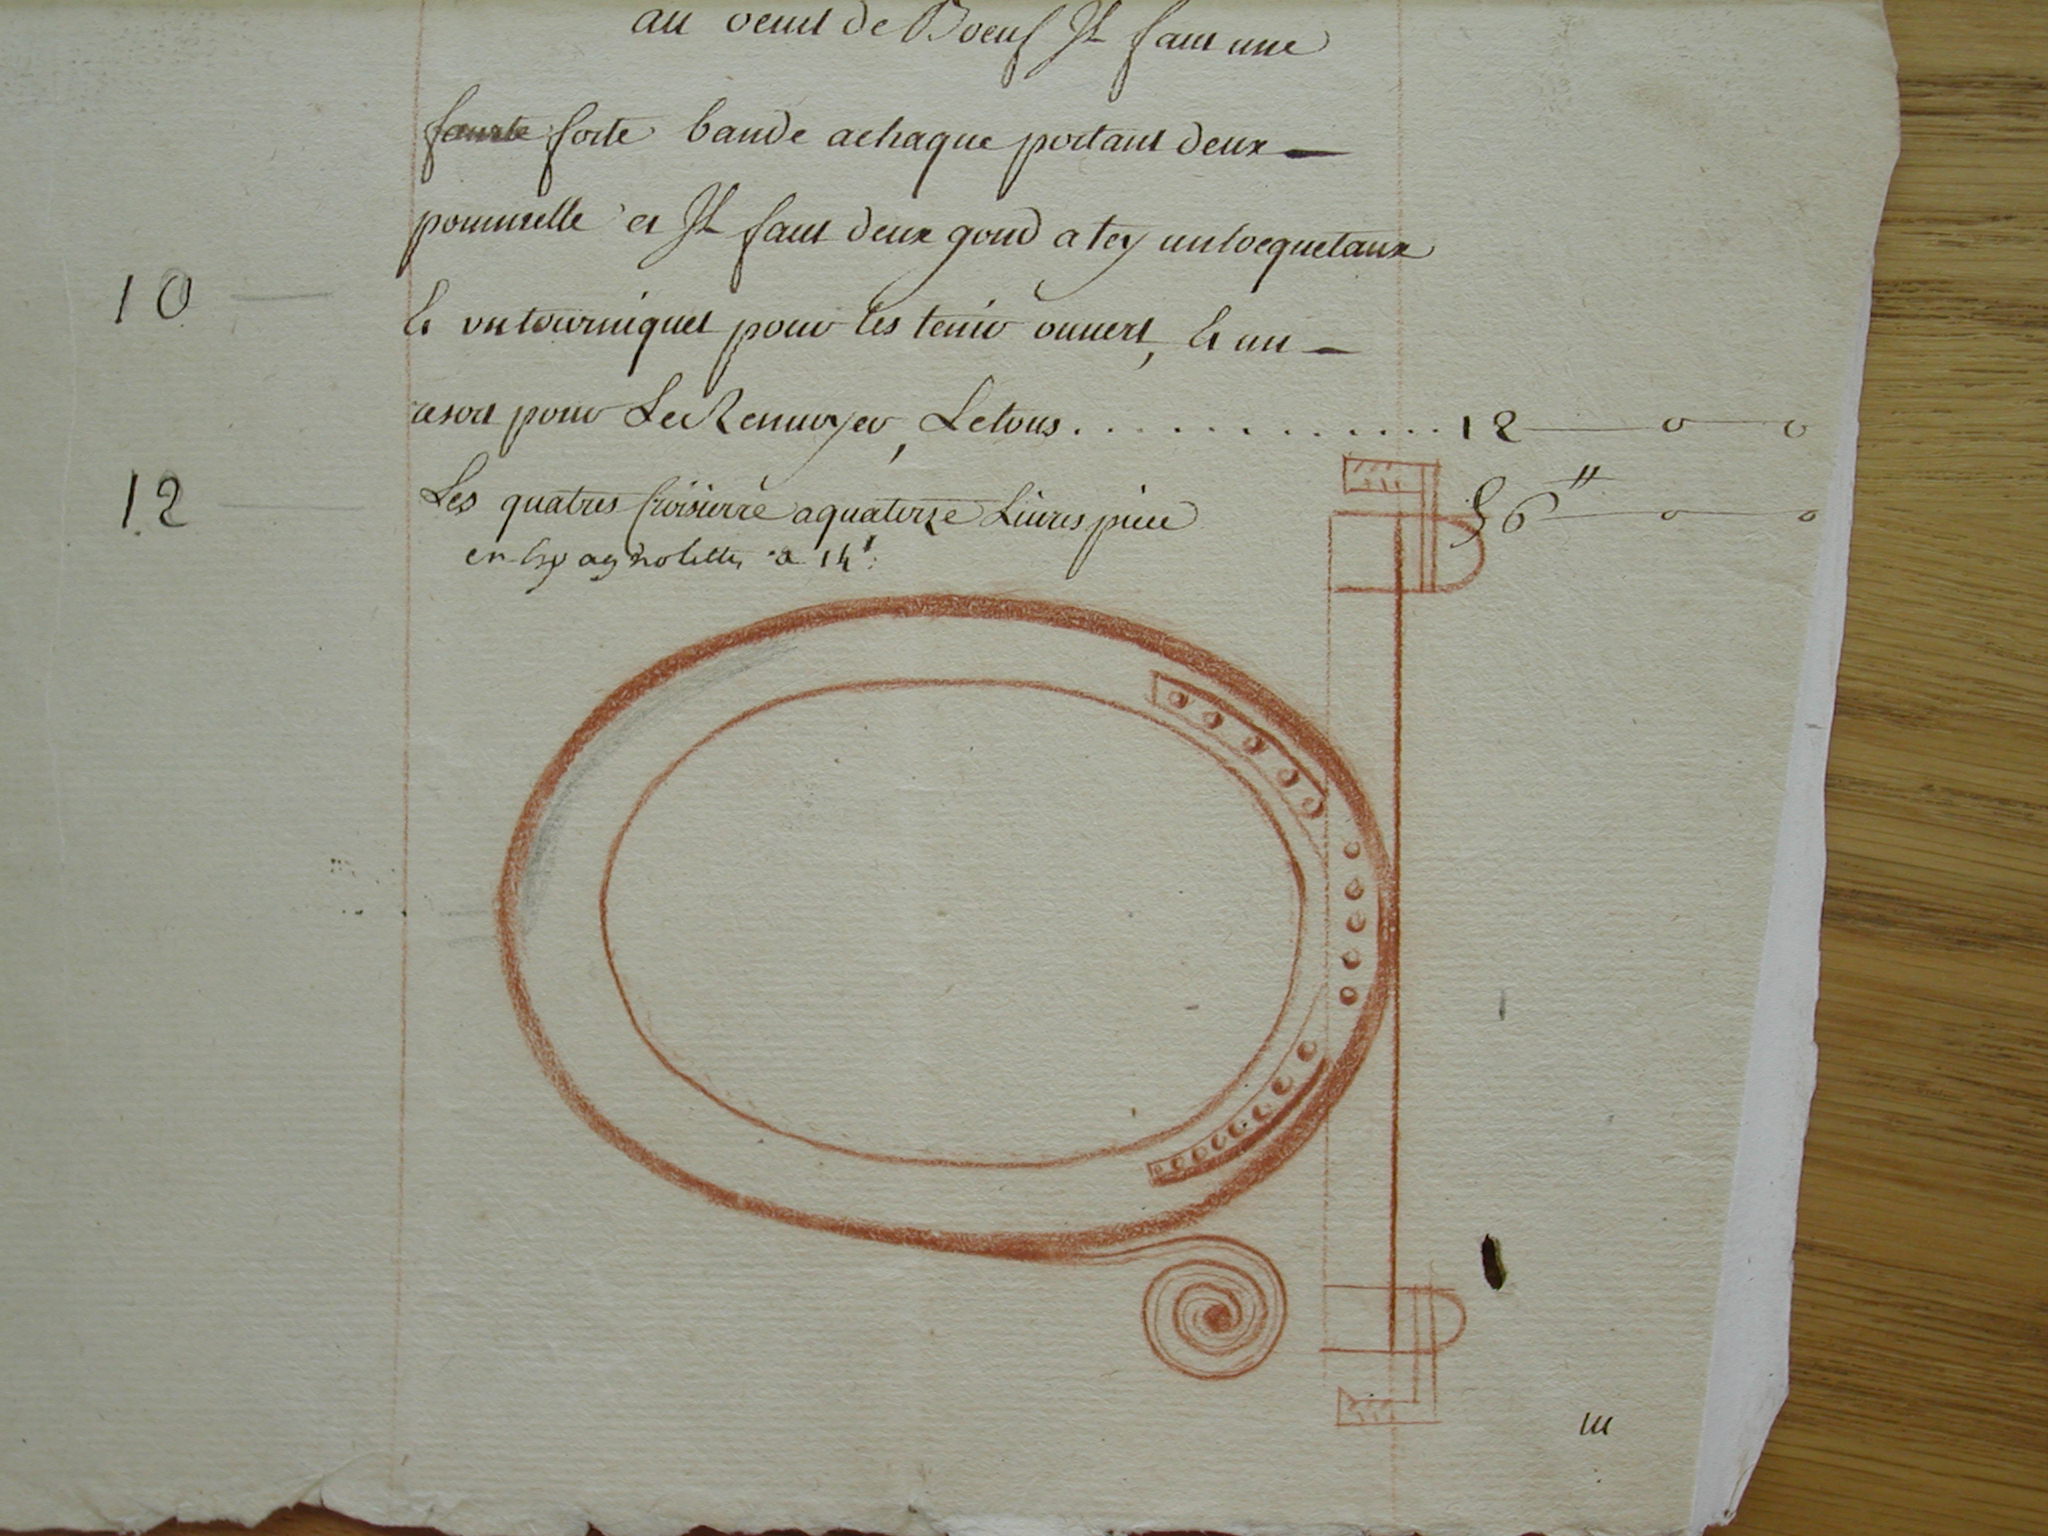 au oeuil de Boeuf Il faut une
forte bande achaque portant deux
pommelle et Il faut deux gond a tey un locquetaux
10
Et un tourniquet pour les tenir ouvert, Et un
resort pour Le Renvoyer, Le tous . . . . . . . . . . . . 12 — o — o
12
Les quatres Croisierre a quatorze Livres piece 56" — o — o
en Espagnolettes a 14#